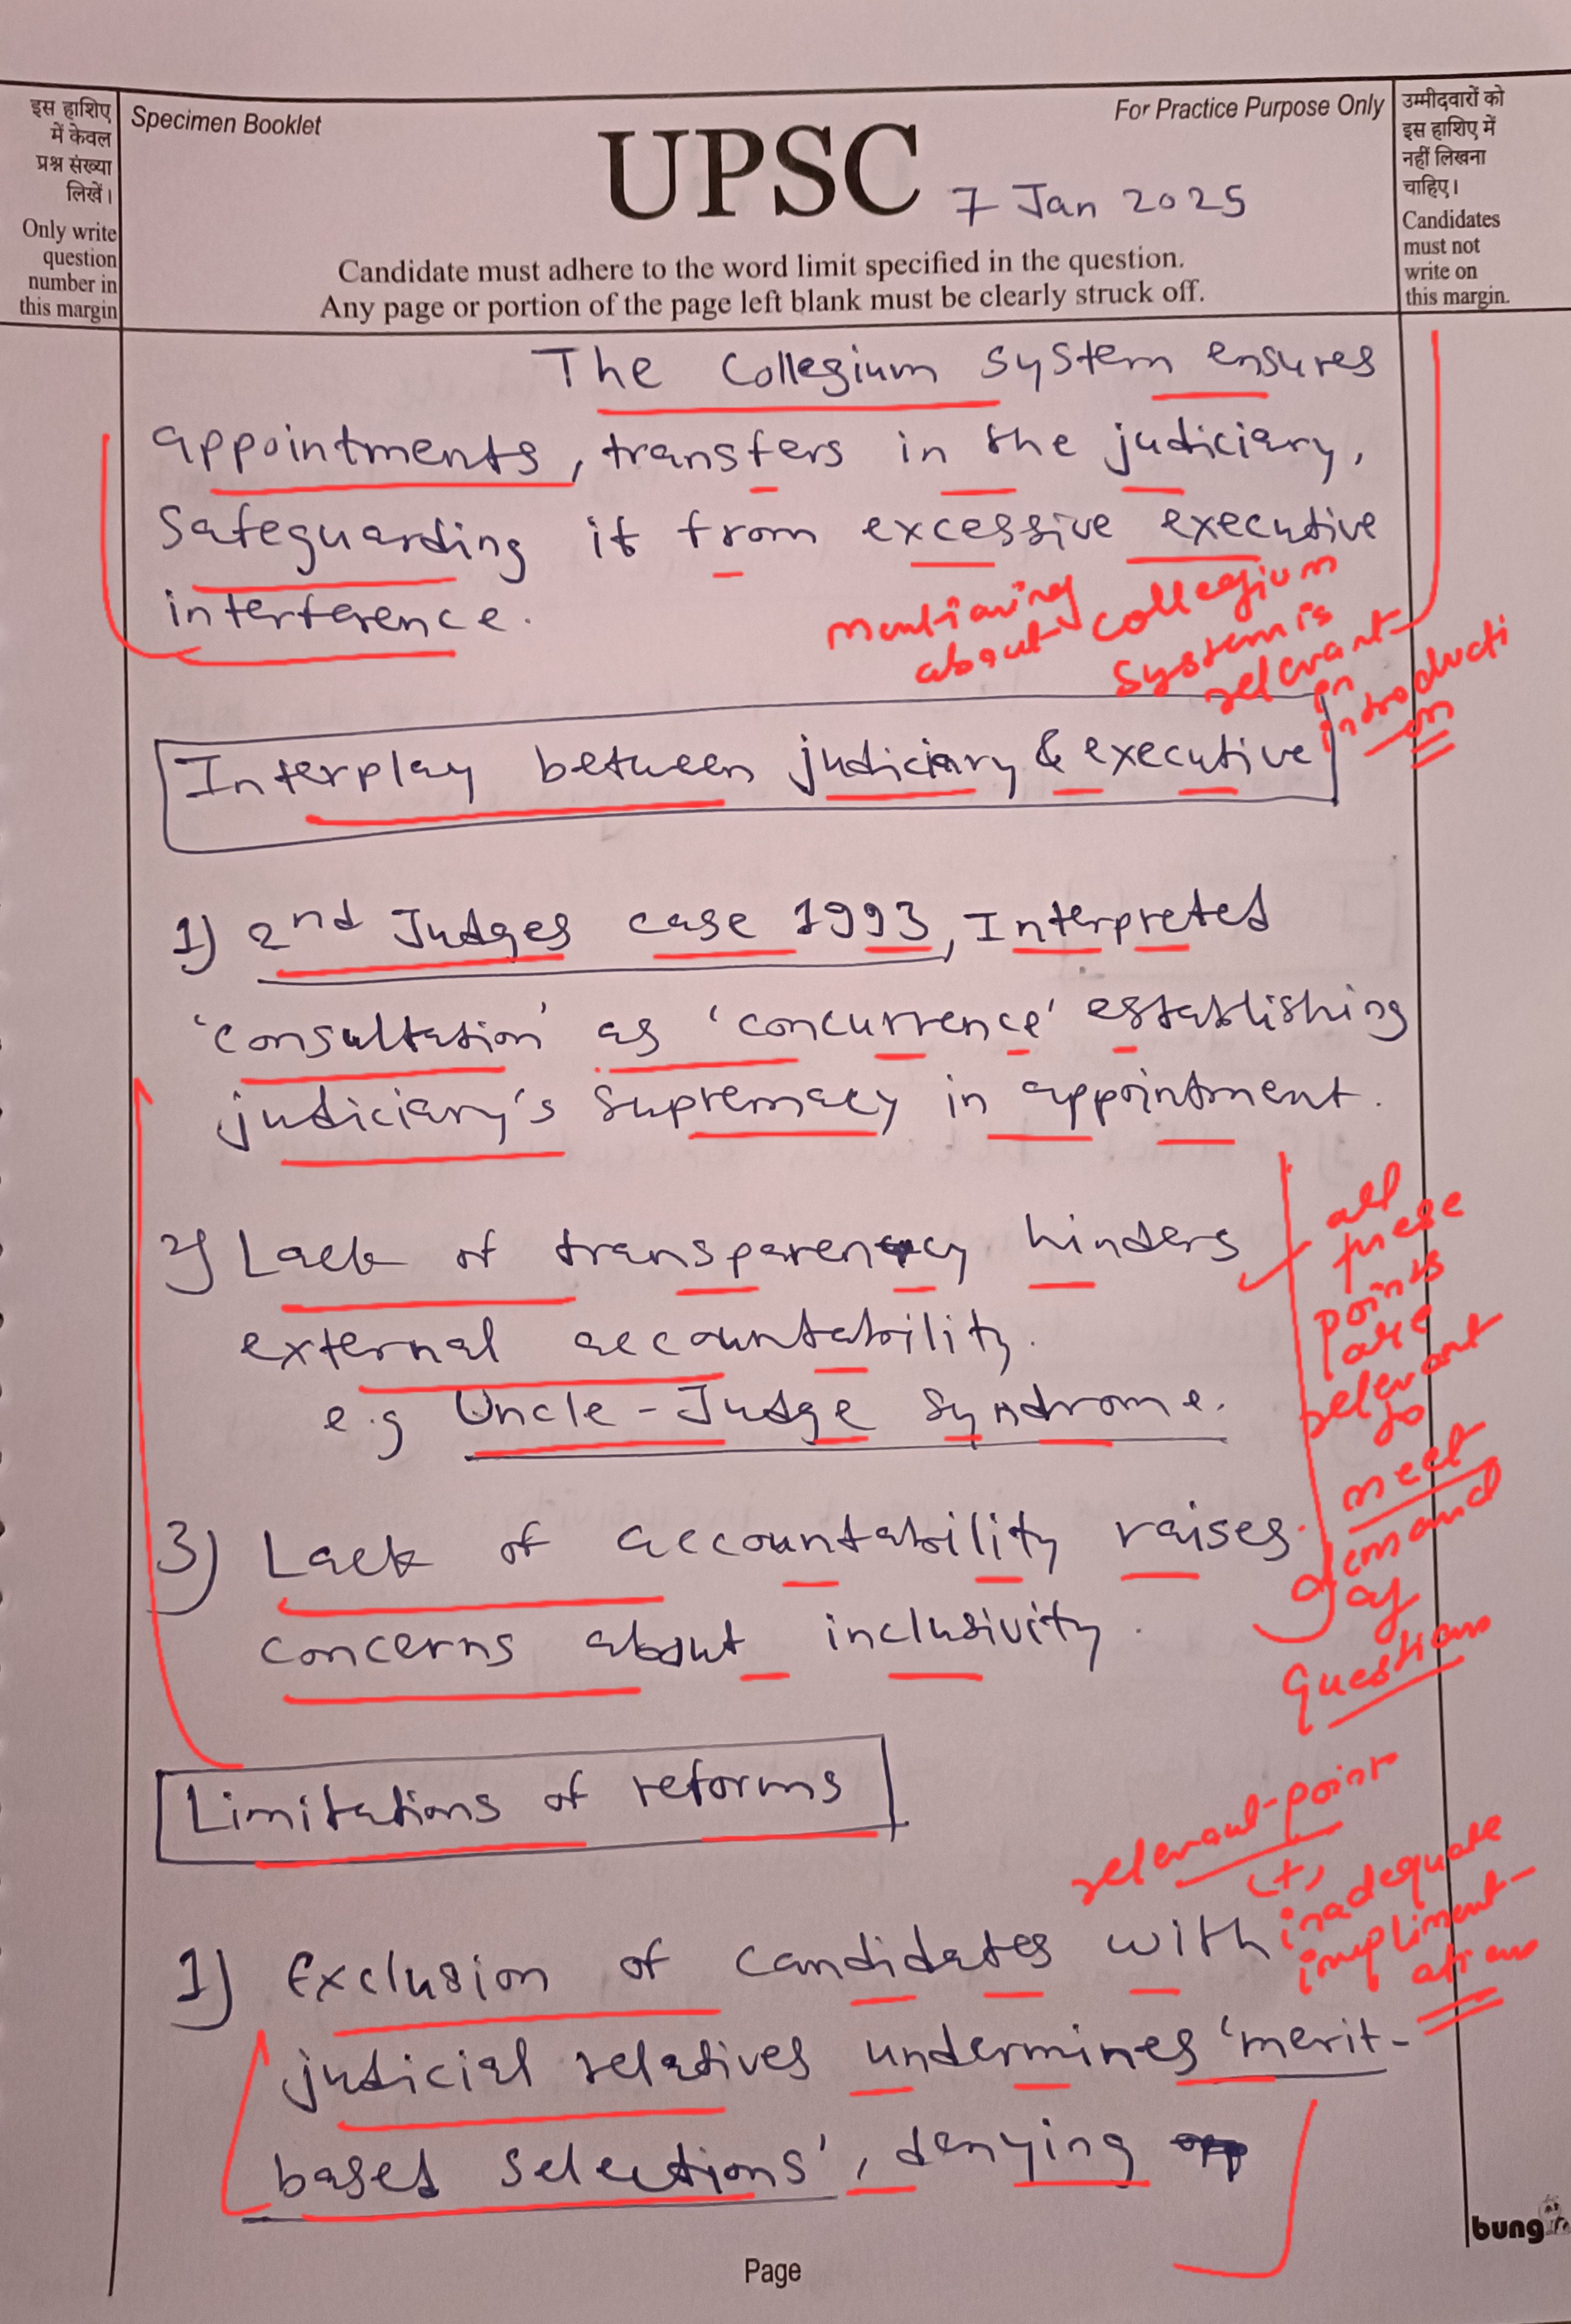 इस हाशिए
में केवल
प्रश्न संख्या
लिखें।
Only write
question
number in
this margin
Specimen Booklet
For Practice Purpose Only
UPSC
7 Jan 2025
Candidate must adhere to the word limit specified in the question.
Any page or portion of the page left blank must be clearly struck off.
उम्मीदवारों को
इस हाशिए में
नहीं लिखना
चाहिए।
Candidates
must not
write on
this margin.
The Collegium system ensures
appointments, transfers in the judiciary,
safeguarding it from excessive executive
interference.
mentioning
about collegium
system is
relevant
in
introducti
on
Interplay between judiciary & executive
1) 2nd Judges case 1993, Interpreted
'consultation' as 'concurrence' establishing
judiciary's supremacy in appointment.
2) Lack of transparency hinders
external accountability.
e.g Uncle-Judge Syndrome.
3) Lack of accountability raises
concerns about inclusivity.
all
these
points
are
relevant
to
meet
demand
of
question
Limitations of reforms
relevant point
(+)
inadequate
impliment-
ation
1) Exclusion of candidates with
judicial relatives undermines 'merit-
based selections', denying
Page
bung